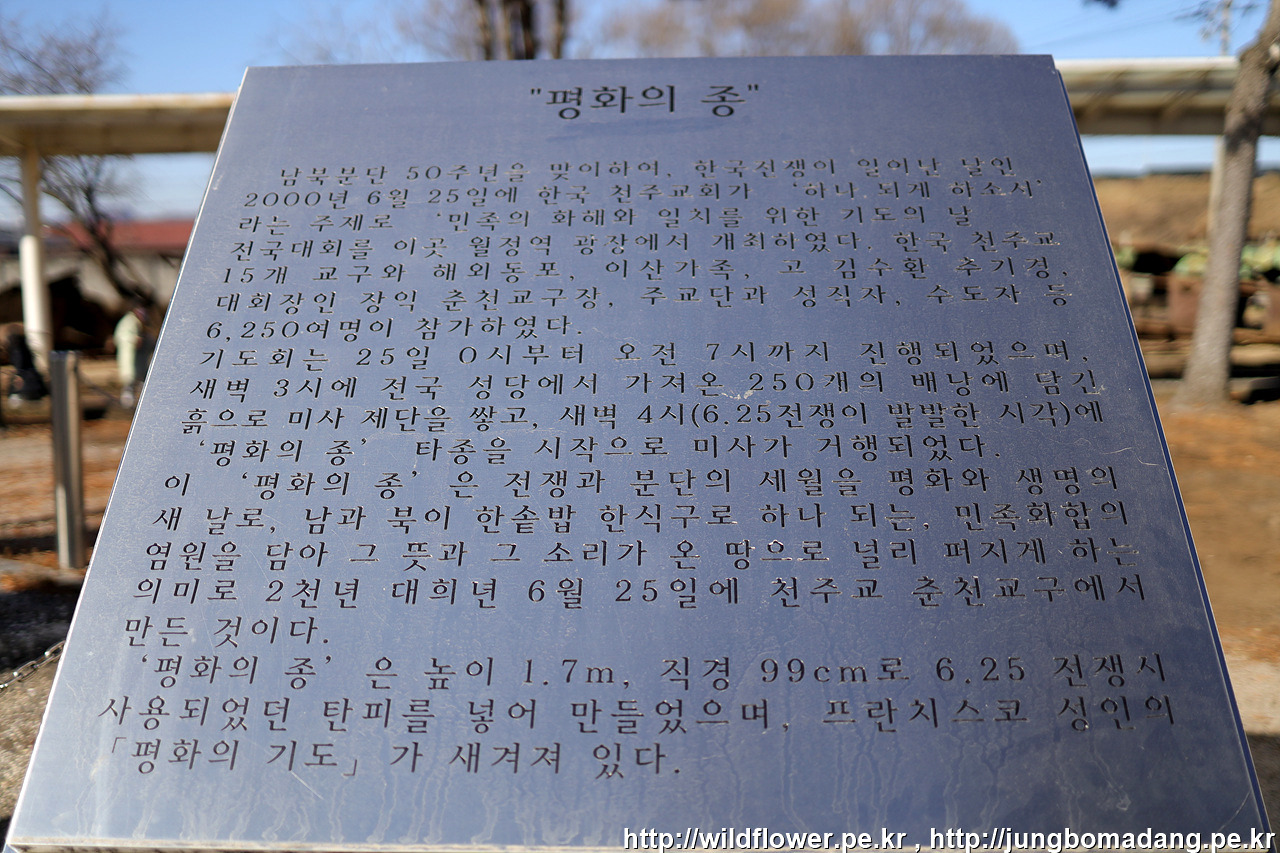 "평화의 종"
남북분단 50주년을 맞이하여, 한국전쟁이 일어난 날인
2000년 6월 25일에 한국 천주교회가 ‘하나 되게 하소서’
라는 주제로 ‘민족의 화해와 일치를 위한 기도의 날
전국대회를 이곳 월정역 광장에서 개최하였다. 한국 천주교
15개 교구와 해외동포, 이산가족, 고 김수환 추기경,
대회장인 장익 춘천교구장, 주교단과 성직자, 수도자 등
6,250여명이 참가하였다.
기도회는 25일 0시부터 오전 7시까지 진행되었으며,
새벽 3시에 전국 성당에서 가져온 250개의 배낭에 담긴
흙으로 미사 제단을 쌓고, 새벽 4시(6.25전쟁이 발발한 시각)에
‘평화의 종’ 타종을 시작으로 미사가 거행되었다.
이 ‘평화의 종’은 전쟁과 분단의 세월을 평화와 생명의
새 날로, 남과 북이 한솥밥 한식구로 하나 되는, 민족화합의
염원을 담아 그 뜻과 그 소리가 온 땅으로 널리 퍼지게 하는
의미로 2천년 대희년 6월 25일에 천주교 춘천교구에서
만든 것이다.
‘평화의 종’은 높이 1.7m, 직경 99cm로 6.25 전쟁시
사용되었던 탄피를 넣어 만들었으며, 프란치스코 성인의
「평화의 기도」가 새겨져 있다.
http://wildflower.pe.kr , http://jungbomadang.pe.kr